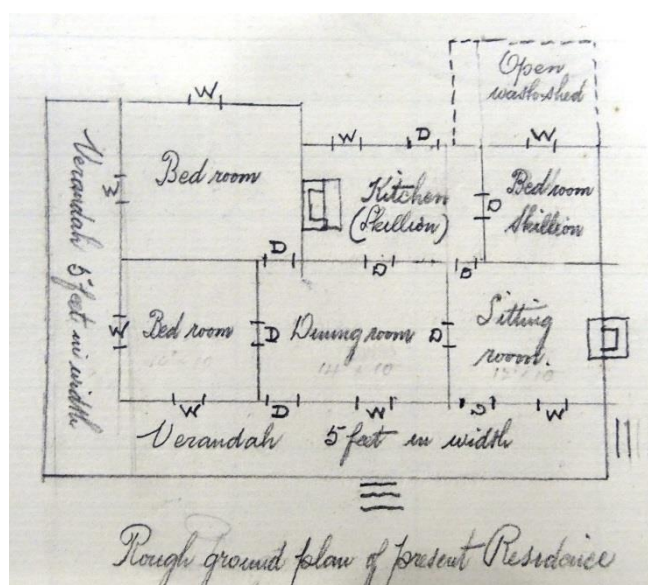 Open
wash-shed
W
W
D
W
Verandah 5 feet in width
W
Bed room
Kitchen
(Skillion)
D
Bed room
Skillion
D
D
D
W
Bed room
D
Dining room
D
Sitting
room.
W
D
W
D
W
Verandah 5 feet in width
Rough ground plan of present Residence